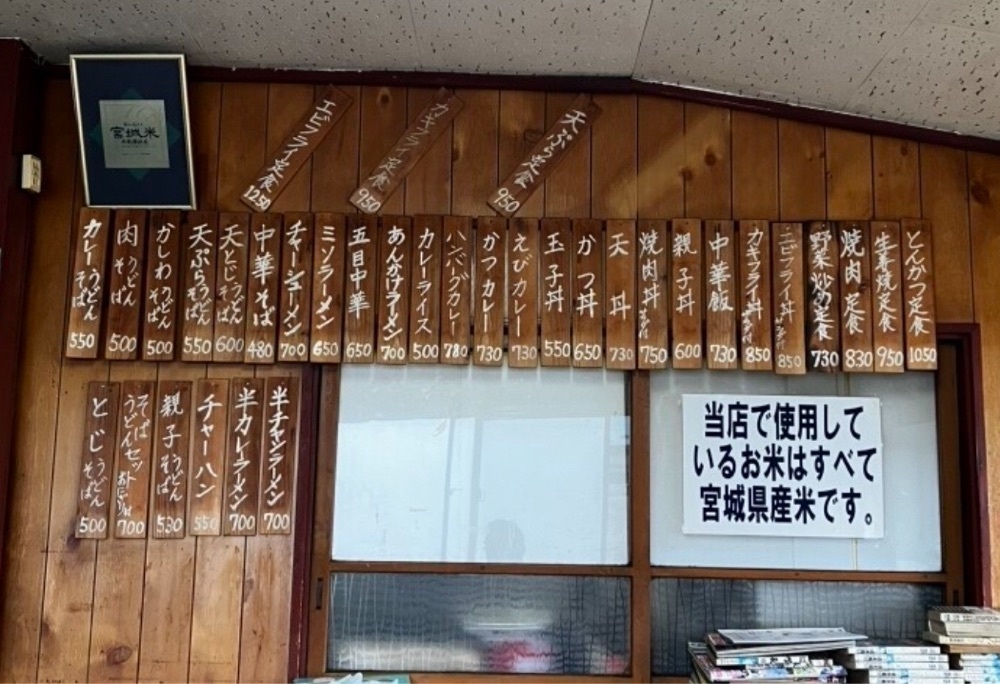 宮城米
エビフライ定食 1250
カキフライ定食 950
天ぷら定食 950
とんかつ定食 1050
生姜焼定食 950
焼肉定食 830
野菜炒め定食 730
エビフライ丼 850
カキフライ丼 850
中華飯 730
親子丼 600
焼肉丼 750
天丼 730
かつ丼 650
玉子丼 550
えびカレー 730
かつカレー 730
ハンバーグカレー 780
カレーライス 500
あんかけラーメン 700
五目中華 650
ミソラーメン 650
チャーシューメン 700
中華そば 480
天とじうどんそば 600
天ぷらうどんそば 550
かしわうどんそば 500
肉うどんそば 500
カレーうどんそば 550
半チャンラーメン 700
半カレーラーメン 700
チャーハン 550
親子うどんそば 530
そばうどんセット 700
とじうどんそば 500
当店で使用して
いるお米はすべて
宮城県産米です。